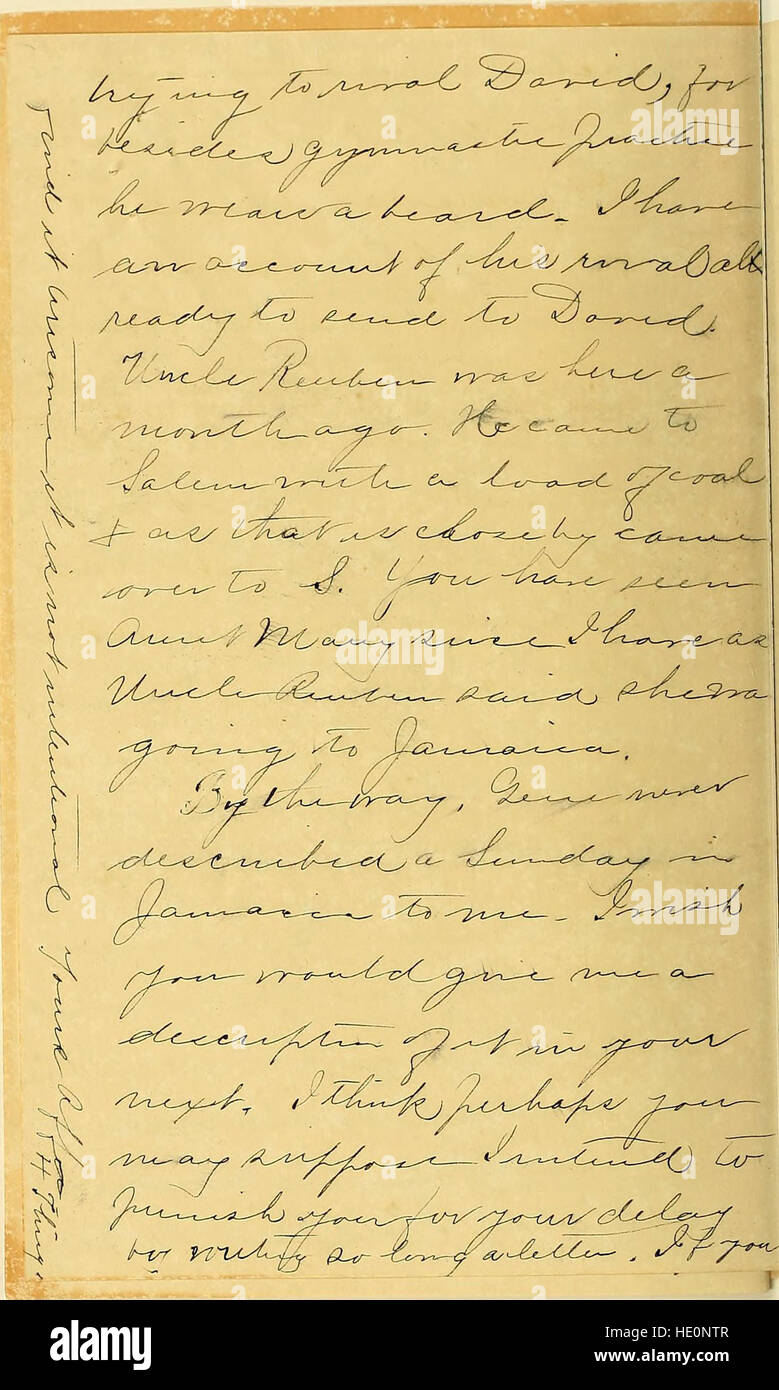 trying to rival David, for
besides gymnastic practice
he wears a beard. I have
an account of his rival all
ready to send to David.
Uncle Reuben was here a
month ago. He came to
Salem with a load of coal
& as that is close by came
over to S. You have seen
Aunt Mary since I have as
Uncle Reuben said she wa
going to Jamaica.
By the way, Gene never
described a Sunday in
Jamaica to me. I wish
you would give me a
description of it in your
next. I think perhaps you
may suppose I intend to
punish you for your delay
by writing so long a letter. If you
find it wearisome it is not intentional Yours Aff
alamy
a
alamy
Image ID: HE0NTR
www.alamy.com